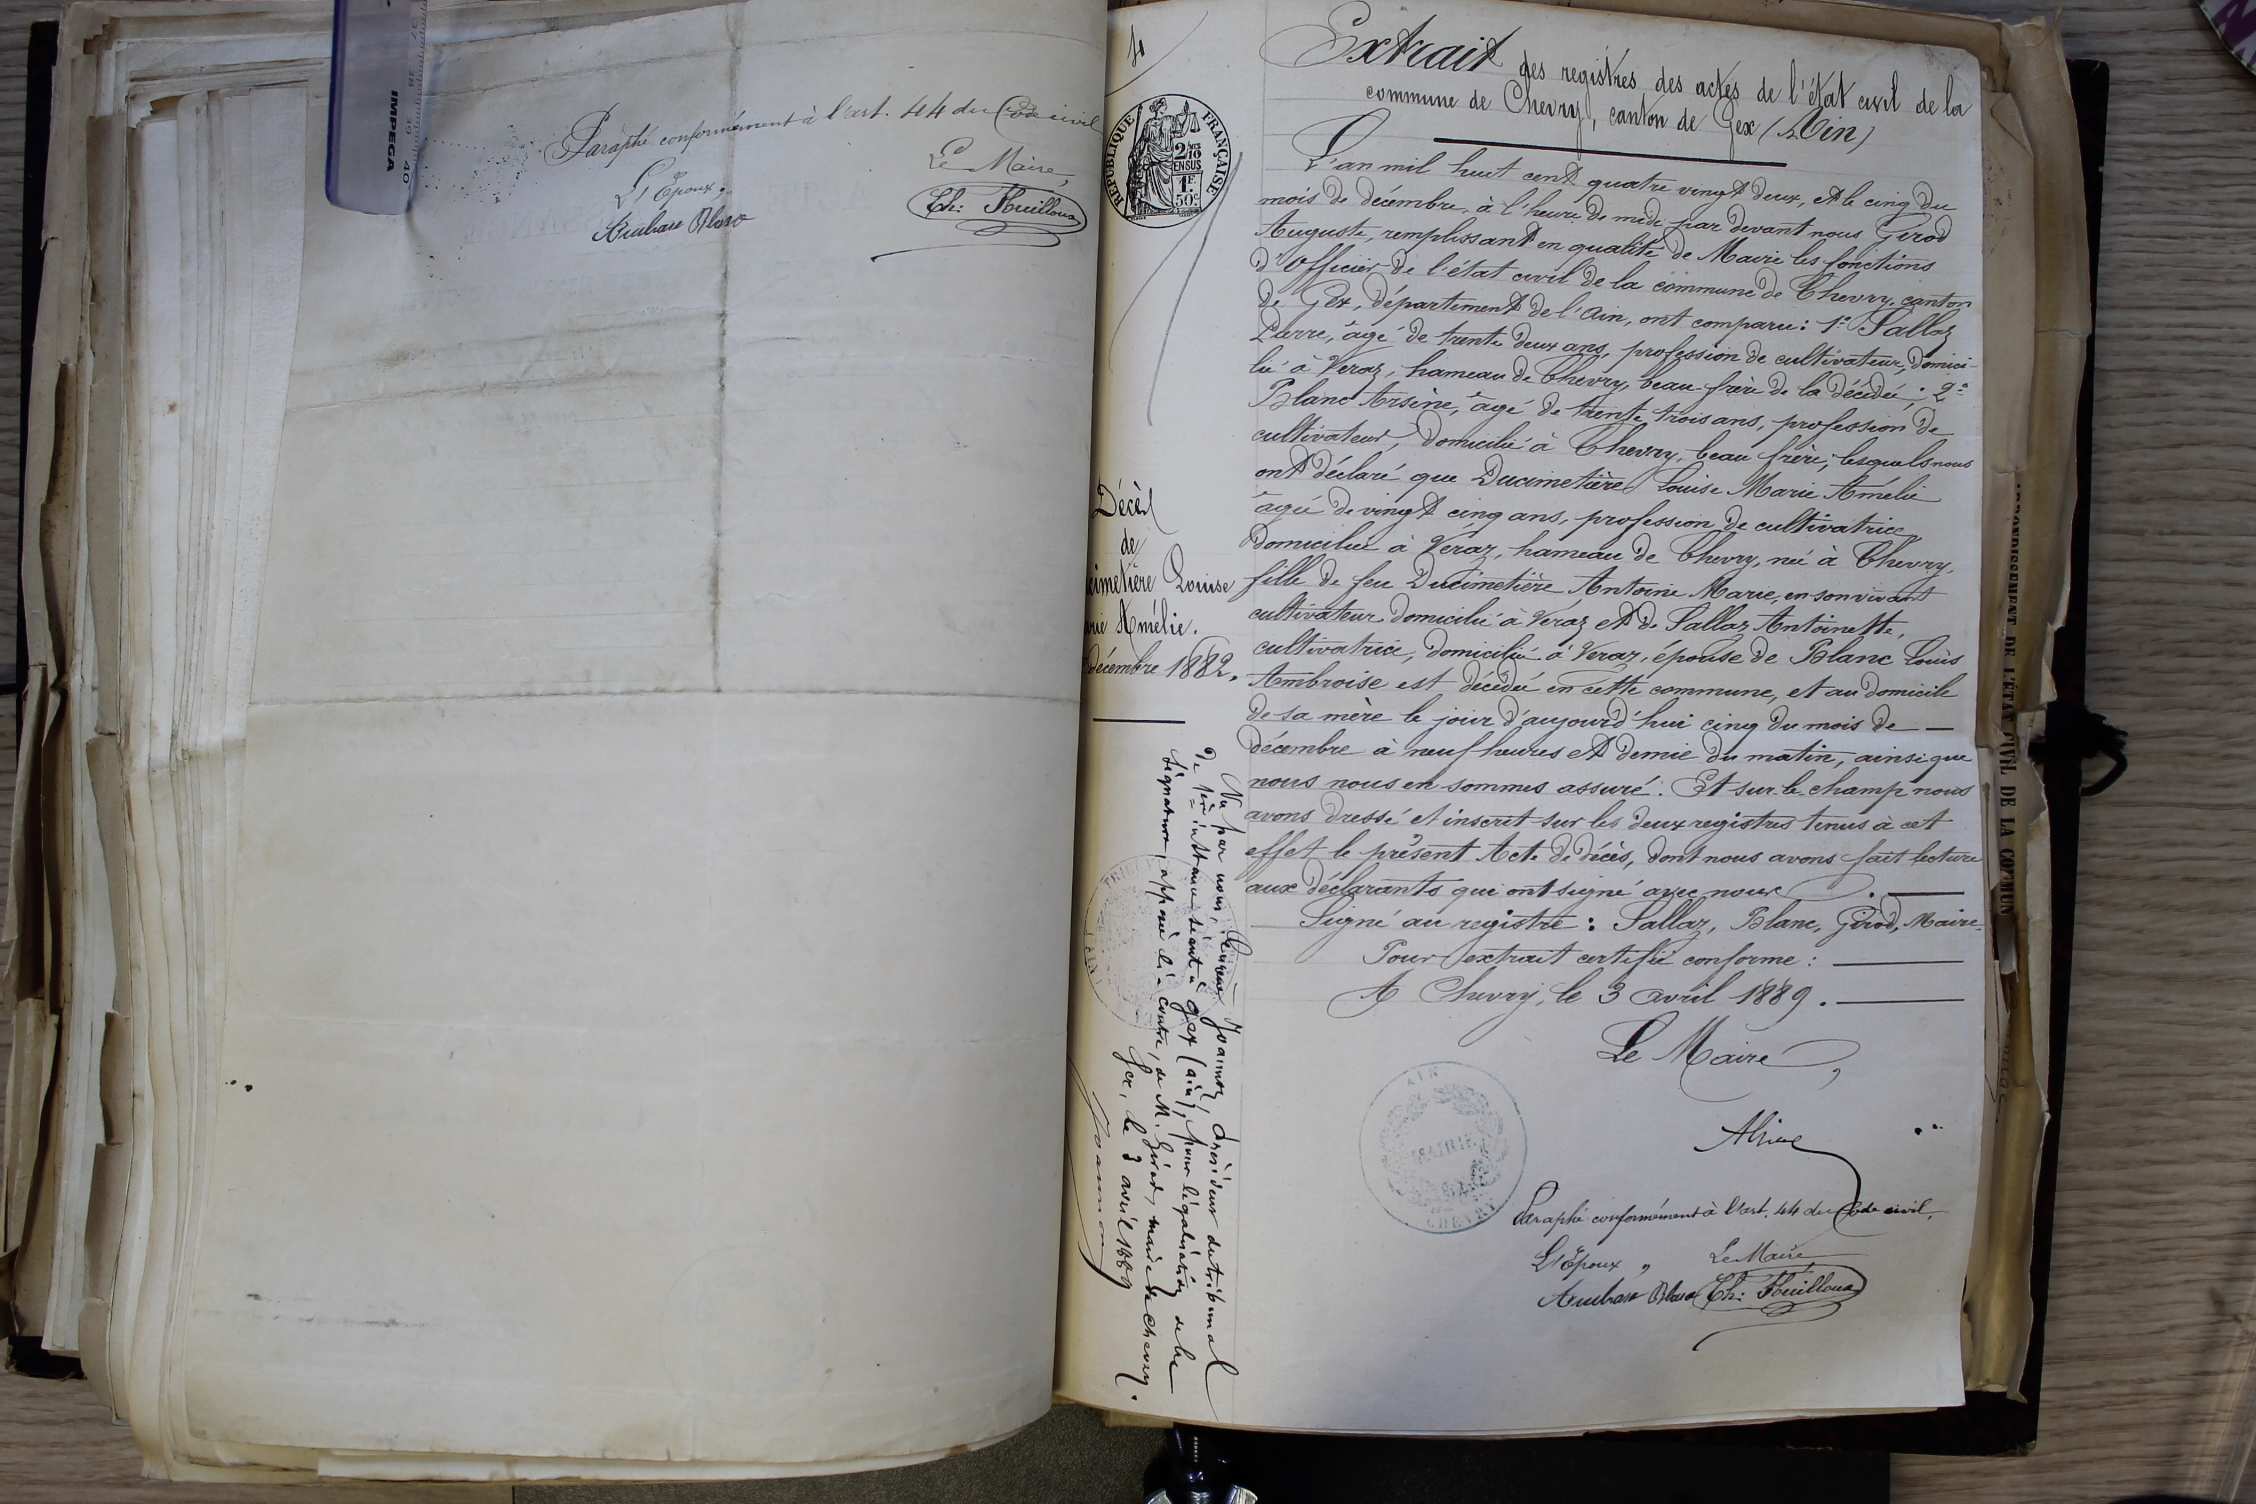 Paraphé conformément à l'art. 44 du Code civil
L'Epoux,
Le Maire,
IMPEGA
4
REPUBLIQUE FRANÇAISE
2/10
EN SUS
1F
50c
Extrait des registres des actes de l'état civil de la
commune de Chevry, canton de Gex (Ain)
L'an mil huit cent quatre vingt deux, et le cinq du
mois de décembre, à l'heure de midi par devant nous Girod
Auguste, remplissant en qualité de Maire les fonctions
d'Officier de l'état civil de la commune de Chevry, canton
de Gex, département de l'Ain, ont comparu: 1° Sallaz
Pierre, âgé de trente deux ans, profession de cultivateur, domici-
lié à Veraz, hameau de Chevry, beau frère de la décédée; 2°
Blanc Arsène, âgé de trente trois ans, profession de
cultivateur, domicilié à Chevry, beau frère; lesquels nous
ont déclaré que Ducimetière Louise Marie Amélie
âgée de vingt cinq ans, profession de cultivatrice,
domiciliée à Véraz, hameau de Chevry, née à Chevry,
fille de feu Ducimetière Antoine Marie, en son vivant
cultivateur domicilié à Véraz et de Sallaz Antoinette,
cultivatrice, domiciliée à Veraz, épouse de Blanc Louis
Ambroise est décédée en cette commune, et au domicile
de sa mère le jour d'aujourd'hui cinq du mois de —
décembre à neuf heures et demie du matin, ainsi que
nous nous en sommes assuré. Et sur le champ nous
avons dressé et inscrit sur les deux registres tenus à cet
effet le présent Acte de décès, dont nous avons fait lecture
aux déclarants qui ont signé avec nous. —
Signé au registre: Sallaz, Blanc, Girod, Maire.
Pour extrait certifié conforme: —
A Chevry, le 3 avril 1889. —
Le Maire,
AIN
MAIRIE
CHEVRY
Paraphé conformément à l'art. 44 du Code civil,
L'Epoux,
Le Maire,
Décès
de
cimetière Louise
rie Amélie.
décembre 1882.
Vu par nous, Joannon, président du tribunal
de 1ère instance séant à Gex (ain), pour légalisation de la
signature, apposée ci-contre, de M. Girod, maire de Chevry.
Gex, le 3 avril 1889
Joannon
ARRONDISSEMENT DE L'ÉTAT CIVIL DE LA COMMUN